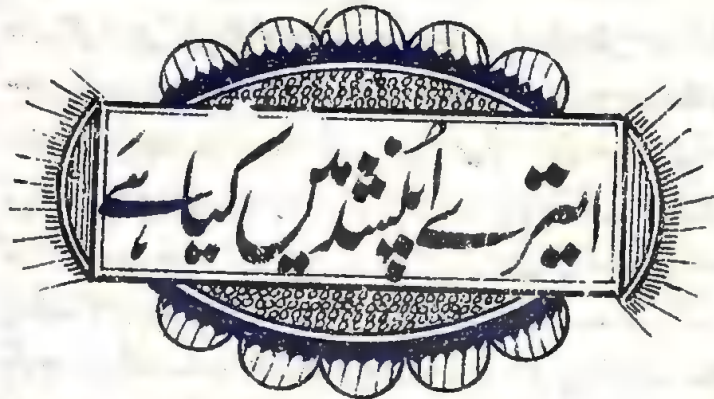 ایترے اُپنشد میں کیا ہے